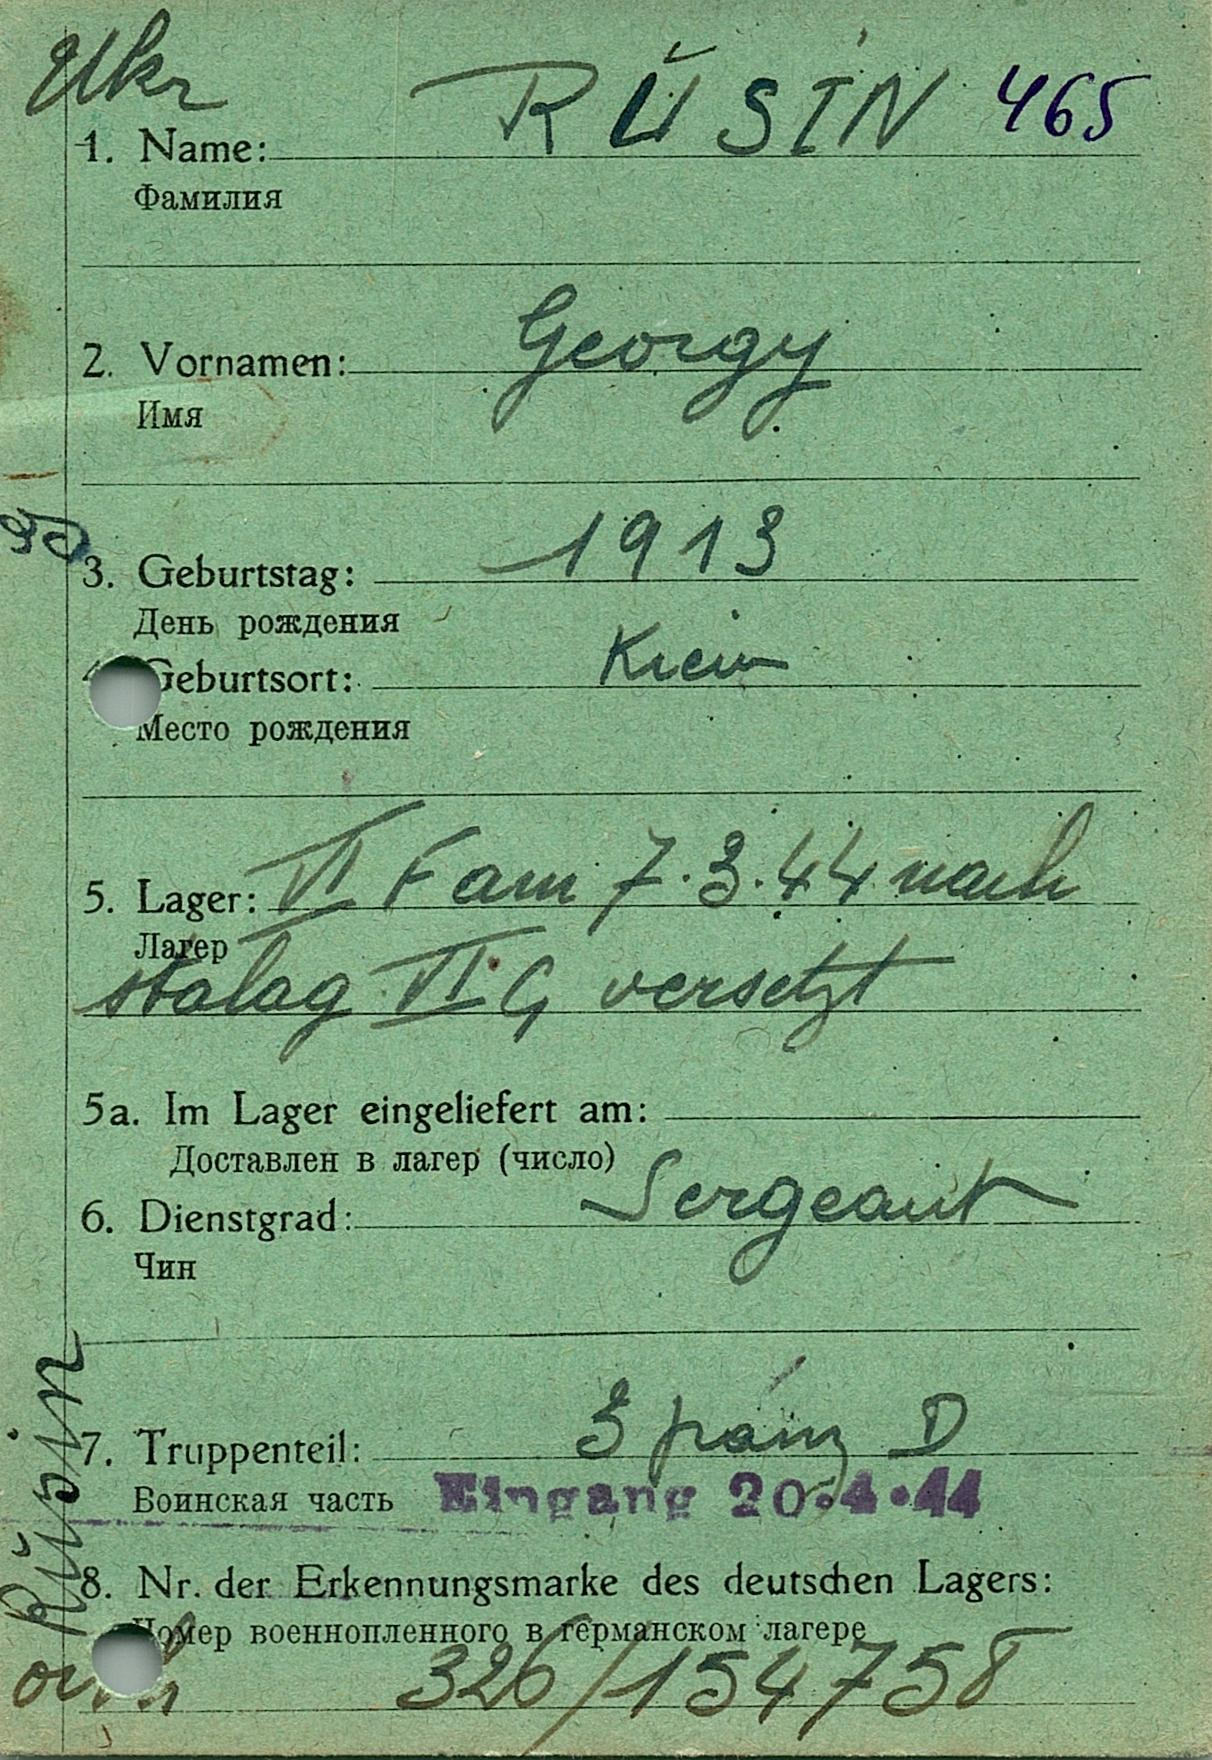 Ukr
RŬSIN 465
1. Name:
Фамилия
2. Vornamen: Georgy
Имя
3. Geburtstag: 1913
День рождения
Geburtsort: Kiew
Место рождения
5. Lager: VI F am 7.3.44 nach
Лагер
stalag VI G versetzt
5a. Im Lager eingeliefert am:
Доставлен в лагер (число)
6. Dienstgrad: Sergeant
Чин
7. Truppenteil: 3 pänz D
Воинская часть
Eingang 20.4.44
8. Nr. der Erkennungsmarke des deutschen Lagers:
Номер военнопленного в германском лагере
326/154758
Rŭsin